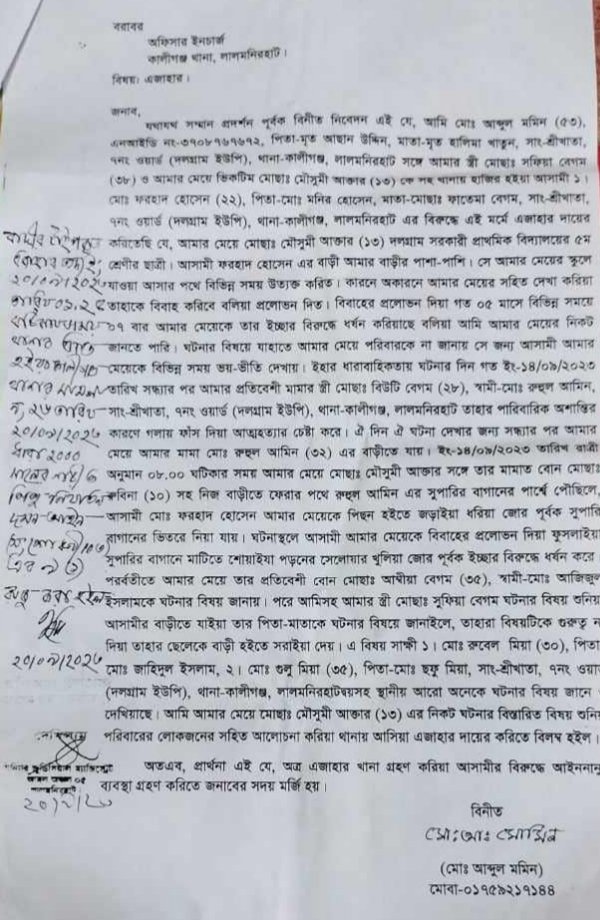 বরাবর
অফিসার ইনচার্জ
কালীগঞ্জ থানা, লালমনিরহাট।
বিষয়: এজাহার।
জনাব,
যথাযথ সম্মান প্রদর্শন পূর্বক বিনীত নিবেদন এই যে, আমি মোঃ আব্দুল মমিন (৫৩),
এনআইডি নং-৩৭০৮৭৬৭৬৭২, পিতা-মৃত আছান উদ্দিন, মাতা-মৃত হালিমা খাতুন, সাং-শ্রীখাতা,
৭নং ওয়ার্ড (দলগ্রাম ইউপি), থানা-কালীগঞ্জ, লালমনিরহাট সঙ্গে আমার স্ত্রী মোছাঃ সফিয়া বেগম
(৩৮) ও আমার মেয়ে ভিকটিম মোছাঃ মৌসুমী আক্তার (১৩) কে সহ থানায় হাজির হইয়া আসামী ১।
মোঃ ফরহাদ হোসেন (২২), পিতা-মোঃ মনির হোসেন, মাতা-মোছাঃ ফাতেমা বেগম, সাং-শ্রীখাতা,
৭নং ওয়ার্ড (দলগ্রাম ইউপি), থানা-কালীগঞ্জ, লালমনিরহাট এর বিরুদ্ধে এই মর্মে এজাহার দায়ের
করিতেছি যে, আমার মেয়ে মোছাঃ মৌসুমী আক্তার (১৩) দলগ্রাম সরকারী প্রাথমিক বিদ্যালয়ের ৫ম
শ্রেণীর ছাত্রী। আসামী ফরহাদ হোসেন এর বাড়ী আমার বাড়ীর পাশা-পাশি। সে আমার মেয়ের স্কুলে
যাওয়া আসার পথে বিভিন্ন সময় উত্যক্ত করিত। কারনে অকারনে আমার মেয়ের সহিত দেখা করিয়া
তাহাকে বিবাহ করিবে বলিয়া প্রলোভন দিত। বিবাহের প্রলোভন দিয়া গত ০৫ মাসে বিভিন্ন সময়ে
৩৭ বার আমার মেয়েকে তার ইচ্ছার বিরুদ্ধে ধর্ষন করিয়াছে বলিয়া আমি আমার মেয়ের নিকট
জানতে পারি। ঘটনার বিষয়ে যাহাতে আমার মেয়ে পরিবারকে না জানায় সে জন্য আসামী আমার
মেয়েকে বিভিন্ন সময় ভয়-ভীতি দেখায়। ইহার ধারাবাহিকতায় ঘটনার দিন গত ইং-১৪/০৯/২০২৩
তারিখ সন্ধ্যার পর আমার প্রতিবেশী মামার স্ত্রী মোছাঃ বিউটি বেগম (২৮), স্বামী-মোঃ রুহুল আমিন,
সাং-শ্রীখাতা, ৭নং ওয়ার্ড (দলগ্রাম ইউপি), থানা-কালীগঞ্জ, লালমনিরহাট তাহার পারিবারিক অশান্তির
কারণে গলায় ফাঁস দিয়া আত্মহত্যার চেষ্টা করে। ঐ দিন ঐ ঘটনা দেখার জন্য সন্ধ্যার পর আমার
মেয়ে আমার মামা মোঃ রুহুল আমিন (৩২) এর বাড়ীতে যায়। ইং-১৪/০৯/২০২৩ তারিখ রাত্রী
অনুমান ০৮.০০ ঘটিকার সময় আমার মেয়ে মোছাঃ মৌসুমী আক্তার সঙ্গে তার মামাত বোন মোছাঃ
রুবিনা (১০) সহ নিজ বাড়ীতে ফেরার পথে রুহুল আমিন এর সুপারির বাগানের পার্শ্বে পৌছিলে,
আসামী মোঃ ফরহাদ হোসেন আমার মেয়েকে পিছন হইতে জড়াইয়া ধরিয়া জোর পূর্বক সুপারি
বাগানের ভিতরে নিয়া যায়। ঘটনাস্থলে আসামী আমার মেয়েকে বিবাহের প্রলোভন দিয়া ফুসলাইয়া
সুপারির বাগানে মাটিতে শোয়াইয়া পড়নের সেলোয়ার খুলিয়া জোর পূর্বক ইচ্ছার বিরুদ্ধে ধর্ষন করে।
পরবর্তীতে আমার মেয়ে তার প্রতিবেশী বোন মোছাঃ আম্বীয়া বেগম (৩৫), স্বামী-মোঃ আজিজুল
ইসলামকে ঘটনার বিষয় জানায়। পরে আমিসহ আমার স্ত্রী মোছাঃ সুফিয়া বেগম ঘটনার বিষয় শুনিয়া
আসামীর বাড়ীতে যাইয়া তার পিতা-মাতাকে ঘটনার বিষয়ে জানাইলে, তাহারা বিষয়টিকে গুরুত্ব ন
দিয়া তাহার ছেলেকে বাড়ী হইতে সরাইয়া দেয়। এ বিষয় সাক্ষী ১। মোঃ রুবেল মিয়া (৩০), পিতা
মোঃ জাহিদুল ইসলাম, ২। মোঃ গুলু মিয়া (৩৫), পিতা-মোঃ ছফু মিয়া, সাং-শ্রীখাতা, ৭নং ওয়ার্ড
(দলগ্রাম ইউপি), থানা-কালীগঞ্জ, লালমনিরহাটদ্বয়সহ স্থানীয় আরো অনেকে ঘটনার বিষয় জানে ও
দেখিয়াছে। আমি আমার মেয়ে মোছাঃ মৌসুমী আক্তার (১৩) এর নিকট ঘটনার বিস্তারিত বিষয় শুনি
পরিবারের লোকজনের সহিত আলোচনা করিয়া থানায় আসিয়া এজাহার দায়ের করিতে বিলম্ব হইল।
অতএব, প্রার্থনা এই যে, অত্র এজাহার খানা গ্রহণ করিয়া আসামীর বিরুদ্ধে আইনানু
ব্যবস্থা গ্রহণ করিতে জনাবের সদয় মর্জি হয়।
বিনীত
মোঃ আঃ মোমিন
(মোঃ আব্দুল মমিন)
মোবা-০১৭৫৯২১৭১৪৪
২০/০৯/২০২৩